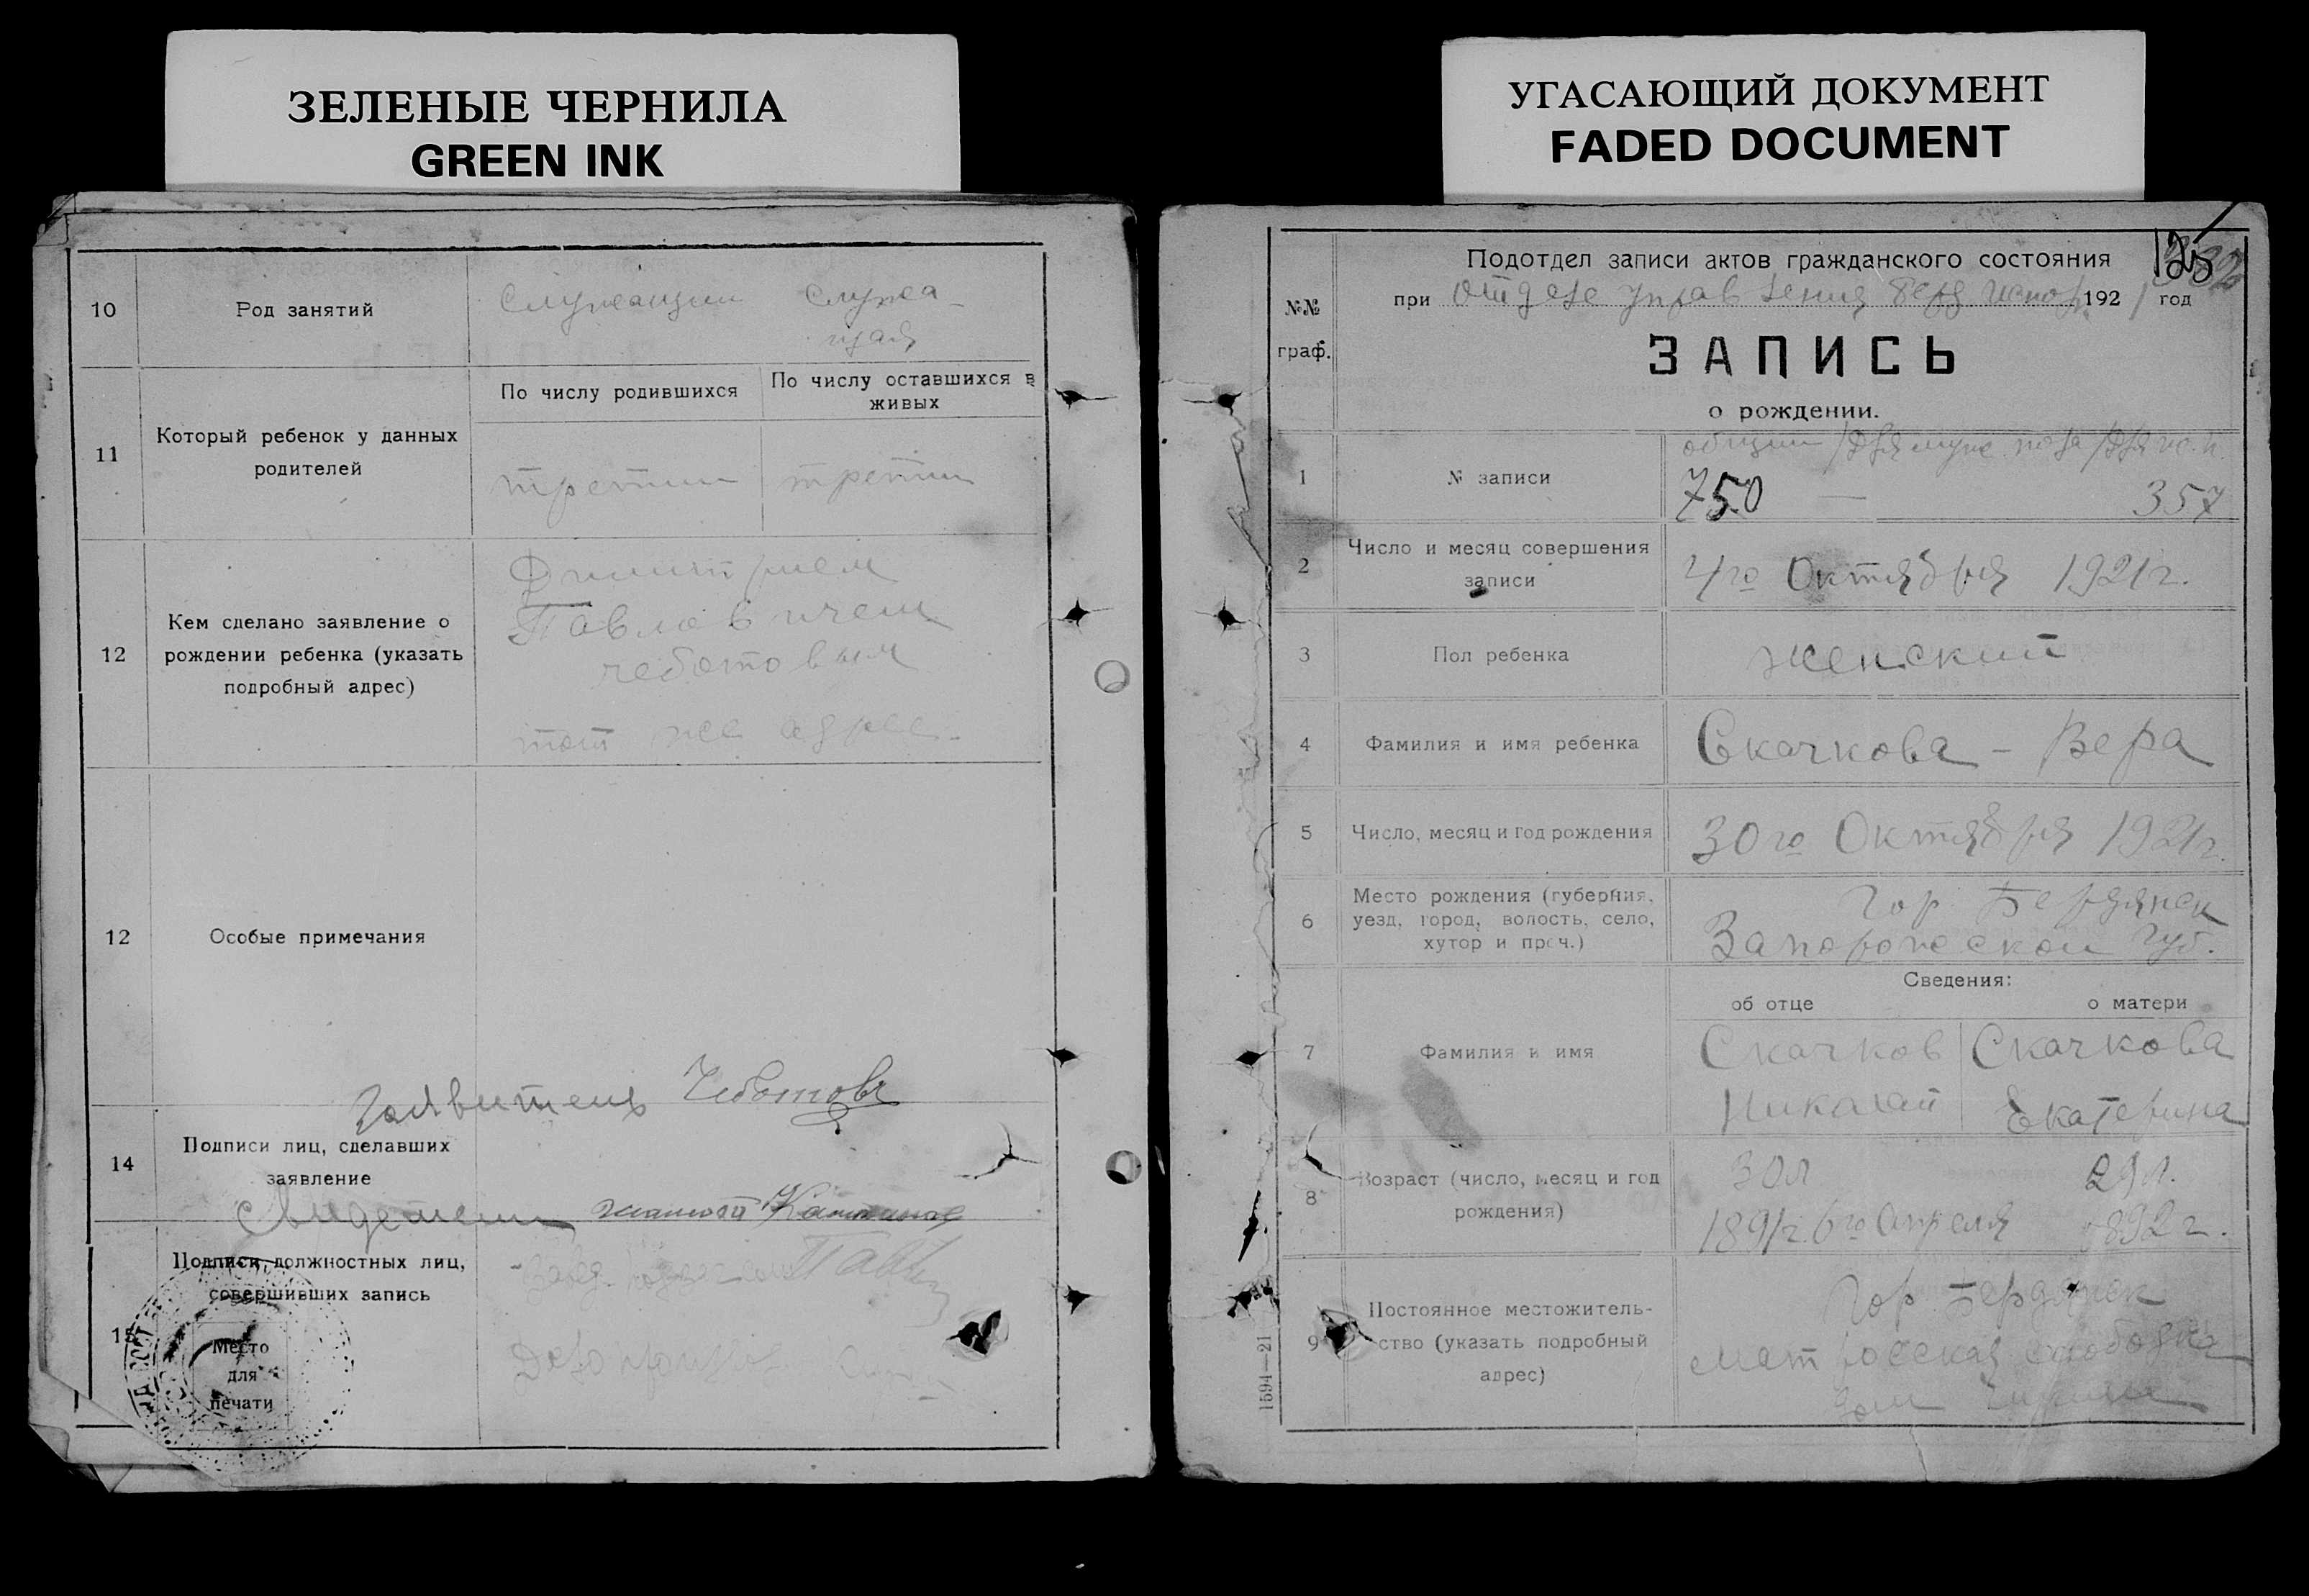 ЗЕЛЕНЫЕ ЧЕРНИЛА
GREEN INK
10
Род занятий
служащий
служа-
щая
11
Который ребенок у данных
родителей
По числу родившихся
По числу оставшихся в
живых
третий
третий
12
Кем сделано заявление о
рождении ребенка (указать
подробный адрес)
Димитрием
Павловичем
Чеботовым
тот же адрес.
12
Особые примечания
Заявитель Чеботов
14
Подписи лиц, сделавших
заявление
Свидетели
15
Подписи должностных лиц,
совершивших запись
Место
для
печати
УГАСАЮЩИЙ ДОКУМЕНТ
FADED DOCUMENT
125
№№
граф.
Подотдел записи актов гражданского состояния
при Отделе Управления Берд 192 1 год
ЗАПИСЬ
о рождении.
1
№ записи
общий / Для муж. пола / Для ж. п.
750 — 357
2
Число и месяц совершения
записи
4го Октября 1921 г.
3
Пол ребенка
женский
4
Фамилия и имя ребенка
Скачкова - Вера
5
Число, месяц и год рождения
30го Октября 1921 г.
6
Место рождения (губерния,
уезд, город, волость, село,
хутор и проч.)
Гор. Бердянск
Запорожской губ.
Сведения:
об отце
о матери
7
Фамилия и имя
Скачков
Николай
Скачкова
Екатерина
8
Возраст (число, месяц и год
рождения)
30 л
1891 г. 6го Апреля
29 л.
1892 г.
9
Постоянное местожитель-
ство (указать подробный
адрес)
Гор Бердянск
матросская слободка
дом
1594—21